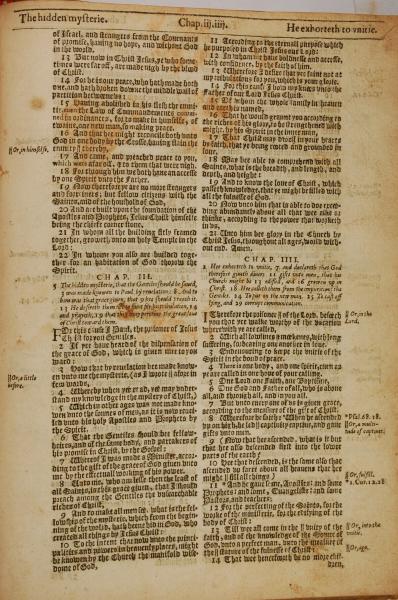 The hidden mysterie.
Chap.iij.iiij.
He exhorteth to vnitie.
of Israel, and strangers from the Couenants
of promise, hauing no hope, and without God
in the world.
13 But now in Christ Iesus, ye who some-
times were far off, are made nigh by the blood
of Christ.
14 For he is our peace, who hath made both
one, and hath broken downe the middle wall of
partition betweene vs:
15 Hauing abolished in his flesh the enmi-
tie, euen the Law of Commandements contei-
ned in ordinances, for to make in himselfe, of
twaine, one new man, so making peace.
16 And that he might reconcile both vnto
God in one body by the Crosse, hauing slain the
enmity || thereby,
|| Or, in himselfe.
17 And came, and preached peace to you,
which were afar off, & to them that were nigh.
18 For through him we both haue an accesse
by one Spirit vnto the Father.
19 Now therefore ye are no more strangers
and forreiners; but fellow citizens with the
Saints, and of the houshold of God,
20 And are built vpon the foundation of the
Apostles and Prophets, Iesus Christ himselfe
being the chiefe corner stone,
21 In whom all the building fitly framed
together, groweth vnto an holy Temple in the
Lord:
22 In whom you also are builded toge-
ther for an habitation of God thorow the
Spirit.
CHAP. III.
5 The hidden mysterie, that the Gentiles should be saued,
3 was made knowen to Paul by reuelation: 8 And to
him was that grace giuen, that 9 he should preach it.
13 He desireth them not to faint for his tribulation, 14
and prayeth, 19 that they may perceiue the great loue
of Christ toward them.
For this cause I Paul, the prisoner of Iesus
Christ for you Gentiles,
2 If ye haue heard of the dispensation of
the grace of God, which is giuen me to you
ward:
3 How that by reuelation he made knowen
vnto me the mysterie, (as I wrote || afore in
few words,
|| Or, a little
before.
4 Whereby when ye read, ye may vnder-
stand my knowledge in the mystery of Christ,)
5 Which in other ages was not made kno-
wen vnto the sonnes of men, as it is now reuei-
led vnto his holy Apostles and Prophets by
the Spirit,
6 That the Gentiles should be fellow-
heires, and of the same body, and partakers of
his promise in Christ, by the Gospel:
7 Whereof I was made a Minister, accor-
ding to the gift of the grace of God giuen vnto
me by the effectuall working of his power.
8 Unto me, who am lesse then the least of
all Saints, is this grace giuen, that I should
preach among the Gentiles the vnsearchable
riches of Christ,
9 And to make all men see, what is the fel-
lowship of the mysterie, which from the begin-
ning of the world, hath bene hid in God, who
created all things by Iesus Christ:
10 To the intent that now vnto the princi-
palities and powers in heauenly places, might
be knowen by the Church the manifold wise-
dome of God,
11 According to the eternall purpose which
he purposed in Christ Iesus our Lord:
12 In whom we haue boldnesse and accesse,
with confidence, by the faith of him.
13 Wherefore I desire that yee faint not at
my tribulations for you, which is your glorie.
14 For this cause I bow my knees vnto the
Father of our Lord Iesus Christ,
15 Of whom the whole family in heauen
and earth is named,
16 That he would graunt you according to
the riches of his glory, to be strengthened with
might, by his Spirit in the inner man,
17 That Christ may dwell in your hearts
by faith, that ye being rooted and grounded in
loue,
18 May bee able to comprehend with all
Saints, what is the breadth, and length, and
depth, and height:
19 And to know the loue of Christ, which
passeth knowledge, that ye might be filled with
all the fulnesse of God.
20 Now vnto him that is able to doe excee-
ding abundantly aboue all that wee aske or
thinke, according to the power that worketh
in vs,
21 Unto him bee glory in the Church by
Christ Iesus, throughout all ages, world with-
out end. Amen.
CHAP. IIII.
1 Hee exhorteth to vnitie, 7 and declareth that God
therefore giueth diuers 11 gifts vnto men, that his
Church might be 13 edified, and 16 growen vp in
Christ. 18 Hee calleth them from the impuritie of the
Gentiles, 24 To put on the new man, 25 To cast off
lying, and 29 corrupt communication.
I Therefore the prisoner || of the Lord, beseech
you that ye walke worthy of the vocation
wherewith ye are called,
|| Or, in the
Lord.
2 With all lowlinesse & meekenes, with long
suffering, forbearing one another in loue,
3 Endeuouring to keepe the vnitie of the
Spirit in the bond of peace.
4 There is one body, and one spirit, euen as
ye are called in one hope of your calling.
5 One Lord, one Faith, one Baptisme,
6 One God and Father of all, who is aboue
all, and through all, and in you all.
7 But vnto euery one of vs is giuen grace,
according to the measure of the gift of Christ.
8 Wherefore he saith: * When he ascended
vp on high, he led || captiuity captiue, and gaue
gifts vnto men.
* Psal. 68. 18.
|| Or, a multi-
tude of captiues.
9 (Now that he ascended, what is it but
that he also descended first into the lower
parts of the earth?
10 Hee that descended, is the same also that
ascended vp farre aboue all heauens that hee
might || fill all things)
|| Or, fulfill.
11 * And he gaue some, Apostles: and some
Prophets: and some, Euangelists: and some
Pastors, and teachers:
* 1. Cor. 12. 28
12 For the perfecting of the Saints, for the
worke of the ministerie, for the edifying of the
body of Christ:
13 Till wee all come in the || vnity of the
faith, and of the knowledge of the Sonne of
God, vnto a perfect man, vnto the measure of
the || stature of the fulnesse of Christ:
|| Or, into the
vnitie.
|| Or, age.
14 That wee henceforth be no more chil-
dren,